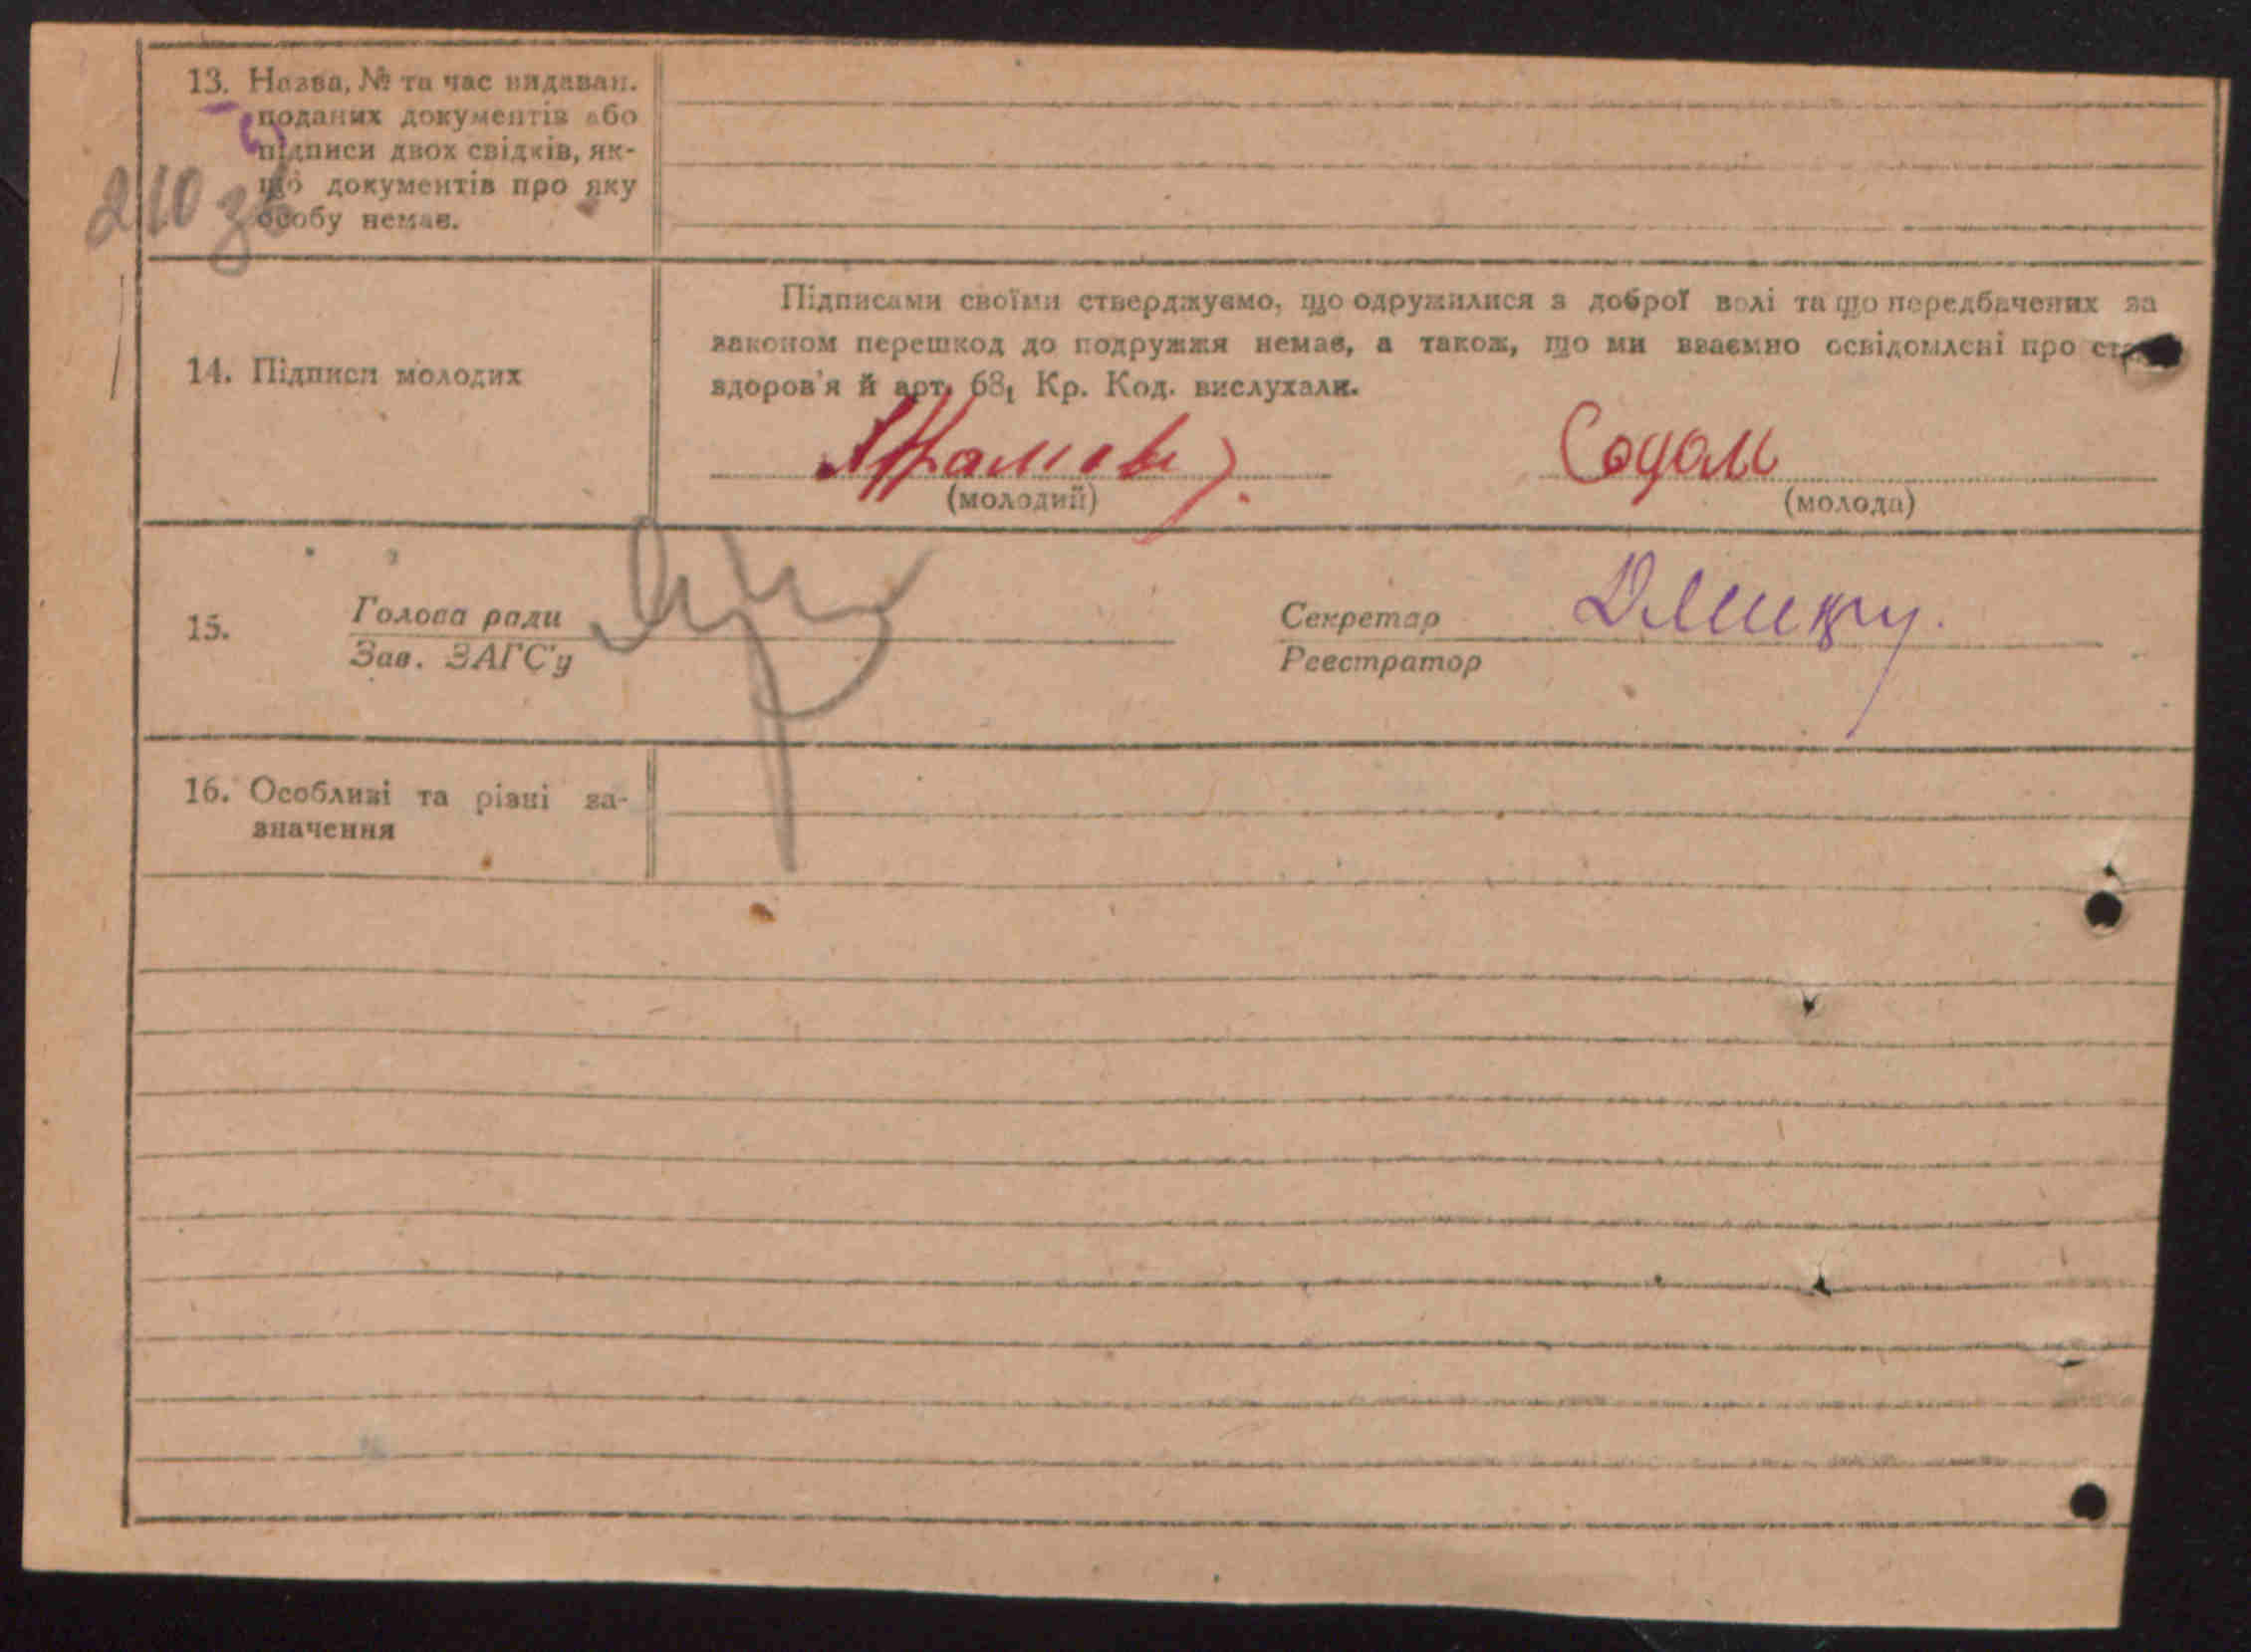 13. Назва, № та час видаван.
поданих документів або
підписи двох свідків, як-
що документів про яку
особу немає.
210 зв
14. Підписи молодих
Підписами своїми стверджуємо, що одружилися з доброї волі та що передбачених за
законом перешкод до подружжя немає, а також, що ми взаємно освідомлені про
здоров'я й арт. 68, Кр. Код. вислухали.
(молодий)
Содом
(молода)
15.
Голова ради
Зав. ЗАГС'у
Секретар
Реєстратор
16. Особливі та різні за-
значення